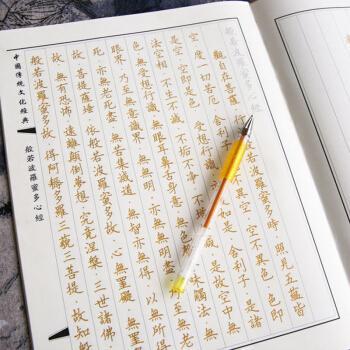 般若波羅蜜多心經
觀自在菩薩·行深般若波羅蜜多時·照見五蘊皆
空·度一切苦厄·舍利子·色不異空·空不異色·色即
是空·空即是色·受想行識·亦復如是·舍利子·是諸
法空相·不生不滅·不垢不淨·不是故空中無
色·無受想行識·無眼耳鼻舌身意·無味觸法·無
眼界·乃至無意識界·無無明·亦無乃至無老
死·亦無老死盡·無苦集滅道·無智亦無得·以無所得
故·菩提薩埵·依般若波羅蜜多故·心無罣礙·無罣礙
故·無有恐怖·遠離顛倒夢想·究竟涅槃·三世諸佛·
般若波羅蜜多故·得阿耨多羅三藐三菩提·故知般
中國傳統文化經典
般若波羅蜜多心經